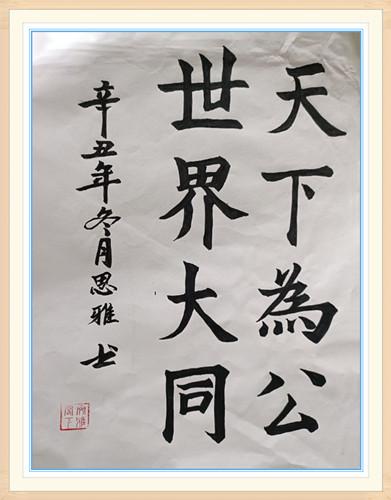 天下為公
世界大同
辛丑年冬月思雅书